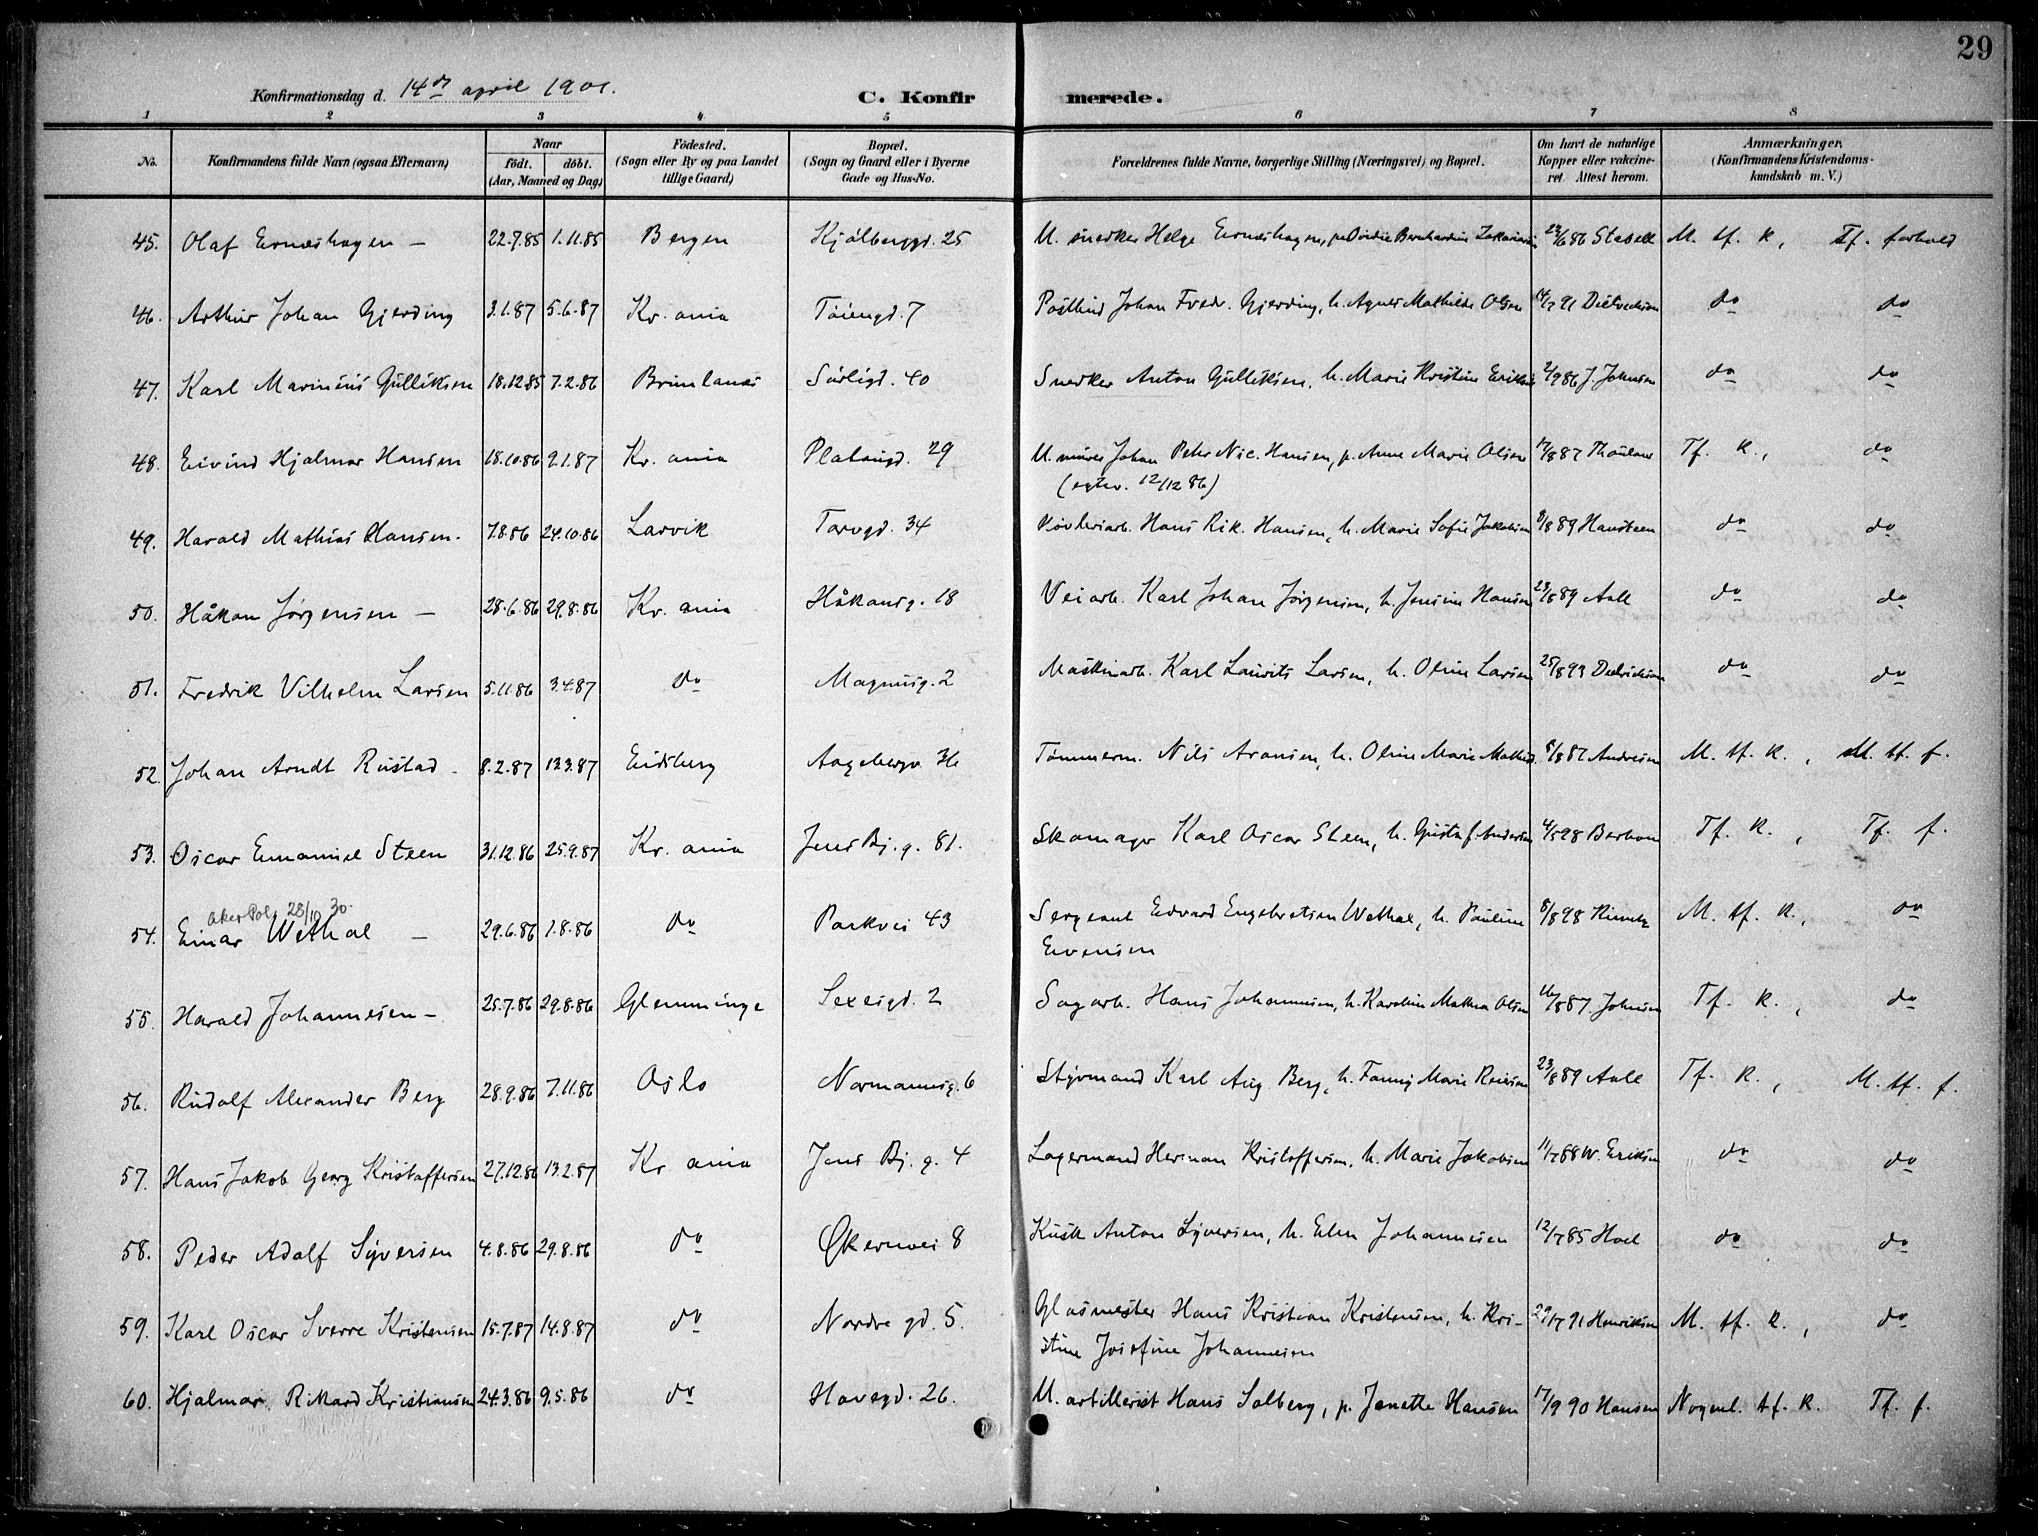 29
Konfirmationsdag d. 14de april 1901.
C. Konfirmerede.
1 2 3 4 5 6 7 8
No. Konfirmandens fulde Navn (ogsaa Efternavn) Naar födt. döbt. (Aar, Maaned og Dag) Födested. (Sogn eller By og paa Landet tillige Gaard) Bopæl. (Sogn og Gaard eller i Byerne Gade og Hus-No. Forældrenes fulde Navne, borgerlige Stilling (Næringsvei) og Bopæl. Om havt de naturlige Kopper eller vakcineret. Attest herom. Anmærkninger, (Konfirmandens Kristendomskundskab m. V.)
45. Olaf Ernæshagen – 22.7.85 1.11.85 Bergen Kjølberggd. 25 U. snedker Helge Ernæshagen, p. Bernhardine Zakariasen 23/6 86 Stabell M. tf. K, Tf. forhold
46. Arthur Johan Gjerding 3.1.87 5.6.87 Kr. ania Tøiengd. 7 Postbud Johan Fredr. Gjerding, h. Agnes Mathilde Olsen 14/7 91 Diedrichson do do
47. Karl Marinius Gulliksen 18.12.85 7.2.86 Brunlanes Sørligd. 40 Snedker Anton Gulliksen, h. Marie Kristine Eriksen 2/9 86 J. Johnsen do do
48. Eivind Hjalmar Hansen 18.10.86 9.1.87 Kr. ania Platougd. 29 U. murer Johan Peter Nic. Hansen, p. Anne Marie Olsen 17/8 87 Thoulow Tf. K., do
(egtev. 12/12 86)
49. Harald Mathias Hansen. 7.8.86 24.10.86 Larvik Torvgd. 34 Hans Rik. Hansen, h. Marie Sofie Jakobsen 8/8 89 Hansteen do do
50. Håkon Jørgensen – 28.6.86 29.8.86 Kr. ania Håkonsg. 18 Veiarb. Karl Johan Jørgensen, h. Jensine Hansen 23/8 89 Aall do do
51. Fredrik Vilhelm Larsen 5.11.86 3.4.87 do Magnusg. 2 Maskinarb. Karl Laurits Larsen, h. Oline Larsen 25/8 93 Diedrichson do do
52. Johan Arndt Rustad 8.2.87 13.3.87 Eidsberg Aagebergv. 36 Tømmerm. Nils Aronsen, h. Oline Marie Mathisd. 8/8 87 Andresen M. tf. K. , M. tf. f.
53. Oscar Emanuel Steen 31.12.86 25.9.87 Kr. ania Jens Bj. g. 81. Skomager Karl Oscar Steen, h. Gustaf. Andersen 4/5 98 Berhom Tf. K. , Tf. f.
Aker Pol. 28/10 30.
54. Einar Wethal – 29.6.86 1.8.86 do Parkvei 43 Sergeant Edvard Engebretsen Wethal, h. Pauline 8/8 98 M. tf. K., do
Evensen
55. Harald Johannesen – 25.7.86 29.8.86 Glemminge Sexesgd. 2 Sagarb. Hans Johannesen, h. Karoline Mathea Olsen 16/8 87. Johnsen Tf. K. , do
56. Rudolf Alexander Berg 28.9.86 7.11.86 Oslo Normannsg. 6 Styrmand Karl Aug. Berg, h. Fanny Marie Reiersen 23/8 89 Aall Tf. K. , M. tf. f.
57. Hans Jakob Georg Kristoffersen 27.12.86 13.2.87 Kr. ania Jens Bj. g. 4 Lagermand Herman Kristoffersen, h. Marie Jakobsen 11/7 88 W. Eriksen do do
58. Peder Adolf Syversen 4.8.86 29.8.86 do Økernvei 8 Kusk Anton Syversen, h. Elen Johannesen 12/7 85 Hoel do do
59. Karl Oscar Sverre Kristensen 15.7.87 14.8.87 do Nordre gd. 5. Glasmester Hans Kristian Kristensen, h. Kri- 29/7 91 Henriksen M. tf. K. , do
stine Josefine Johannesen
60. Hjalmar Rikard Kristiansen 24.3.86 9.5.86 do Havegd. 26. U. artillerist Hans Solberg, p. Janette Hansen 17/9 90 Hansen Nogenl. tf. K. Tf. f.